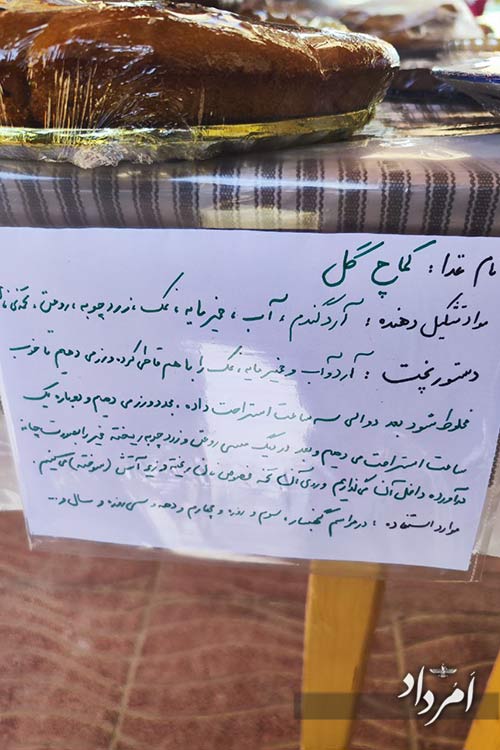 نام غذا : کماچ گل
مواد تشکیل دهنده : آرد گندم ، آب ، خمیر مایه ، نمک ، زردچوبه ، روغن ،
دستور پخت : آرد و آب و خمیر مایه ، نمک را با هم قاطی کرده ورز می دهیم تا خوب
مخلوط شود بعد دو الی سه ساعت استراحت داده . مجدد ورز می دهیم و دوباره یک
ساعت استراحت می دهیم و بعد در دیگ مسی روغن و زردچوبه ریخته خمیر را بصورت چانه
درآورده داخل آن می گذاریم و روی آن تخته مخصوص ریخته و زیر آتش (سوخته) می کنیم
موارد استفاده : در مراسم گهنبار ، سوم و روزه و چهارم و دهه و سی روزه و سال و ...
اَمُرداد